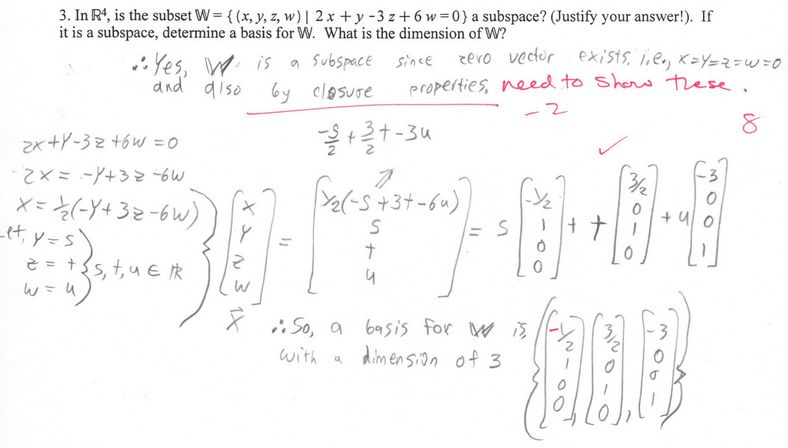 3. In ℝ⁴, is the subset 𝕎 = { (x, y, z, w) | 2 x + y - 3 z + 6 w = 0} a subspace? (Justify your answer!). If
it is a subspace, determine a basis for 𝕎. What is the dimension of 𝕎?
∴ Yes, W is a subspace since zero vector exists, i.e., x=y=z=w=0
and also by closure properties, need to show these.
-2
8
-s/2 + 3/2 t - 3u
2x+y-3z+6w=0
2x = -y+3z-6w
x = 1/2(-y+3z-6w)
Let, y = s
z = t
w = u
} s, t, u ∈ ℝ
[x y z w] = [1/2(-s+3t-6u) s t u] = s [-1/2 1 0 0] + t [3/2 0 1 0] + u [-3 0 0 1]
x⃗
∴ So, a basis for W is { [-1/2 1 0 0], [3/2 0 1 0], [-3 0 0 1] }
with a dimension of 3